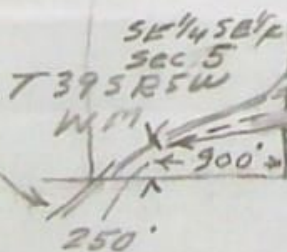 SE¼ SE¼
Sec 5
T39S R5W
WM
X
900'
250'